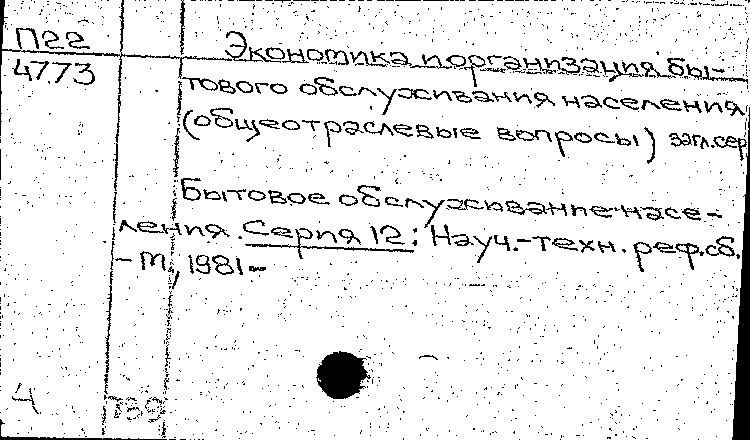 П22
4773
Экономика и организация бы-
тового обслуживания населения
(общеотраслевые вопросы) загл.сер
Бытовое обслуживание насе-
ления. Серия 12: Науч.-техн. реф.сб.
-М., 1981-
4
739